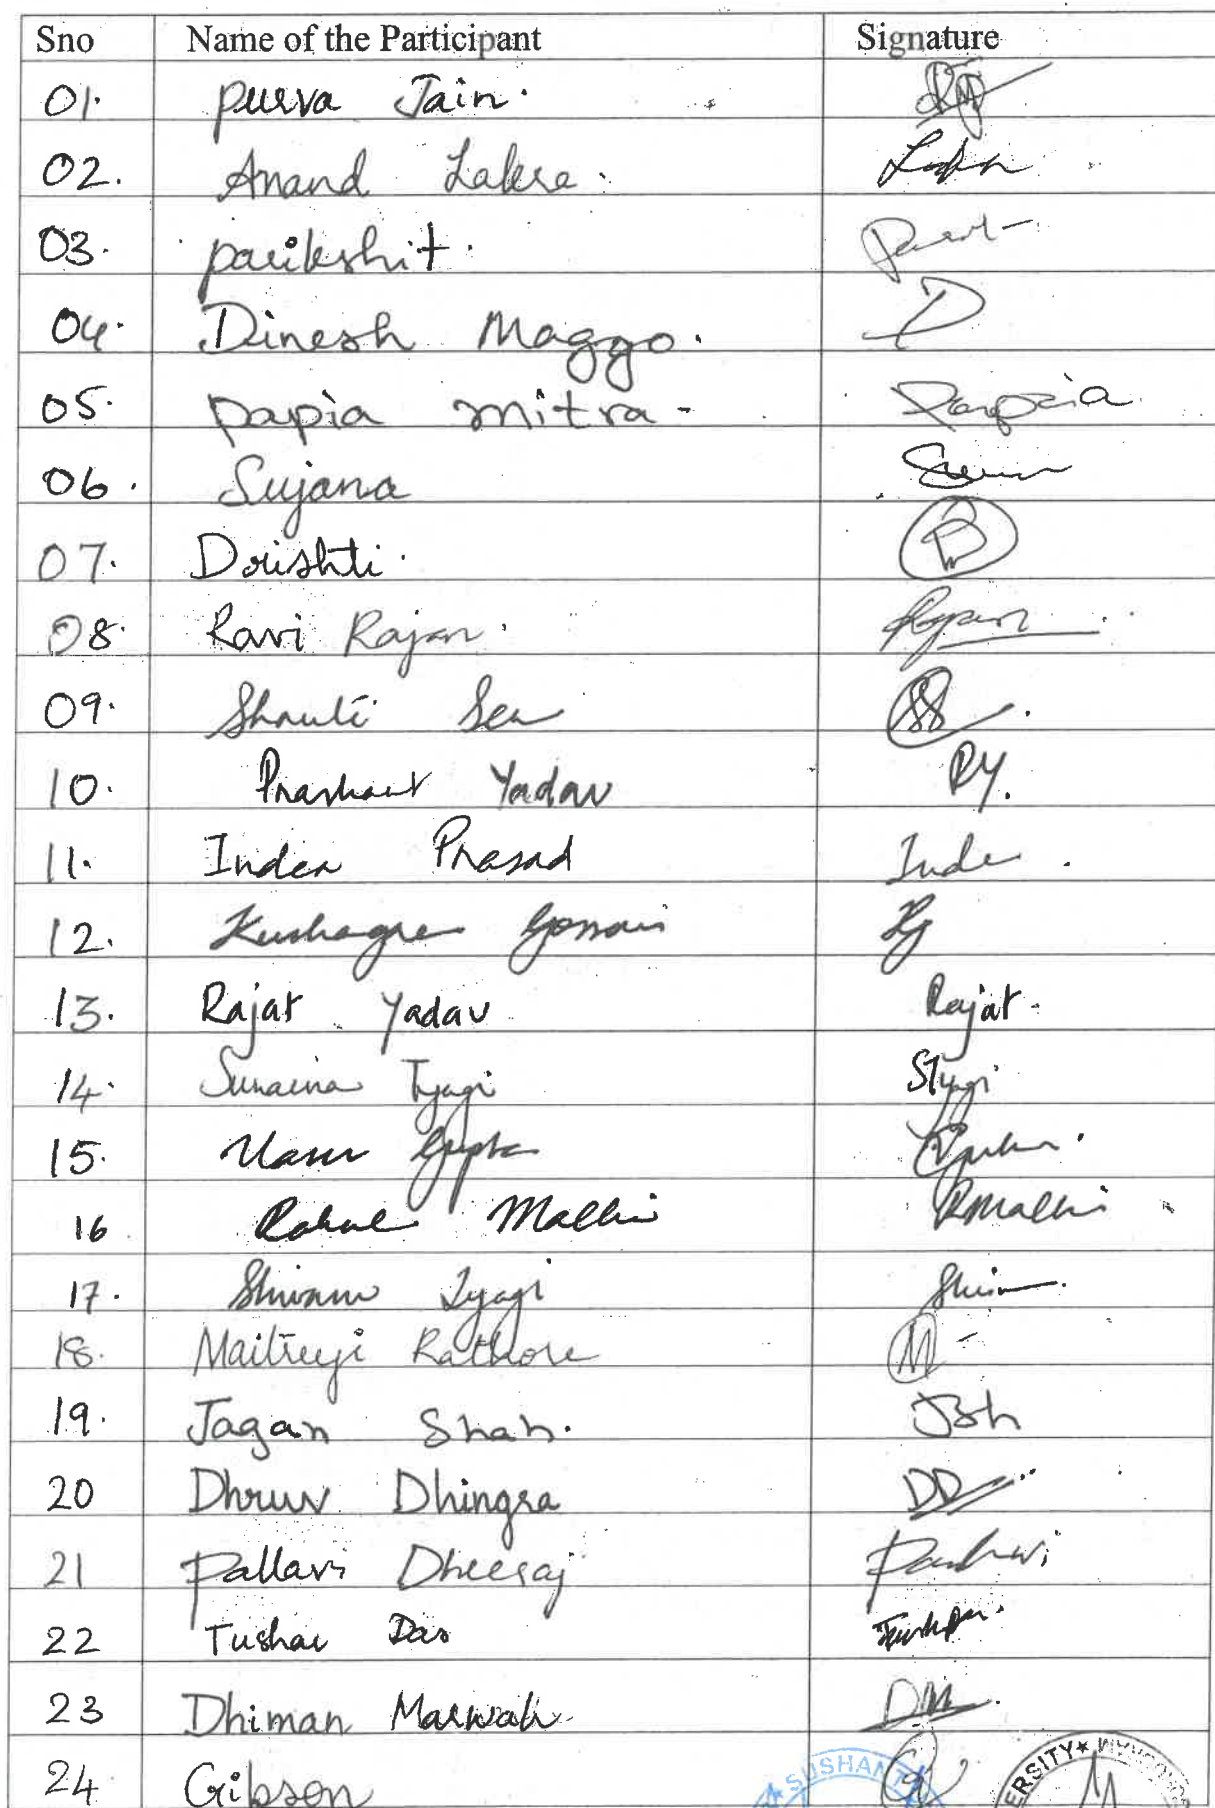 Sno Name of the Participant Signature
01. Purva Jain.
02. Anand Lakra.
03. parikshit.
04. Dinesh Maggo. D
05. papia mitra - Papia
06. Sujana
07. Drishti.
08. Ravi Rajan.
09. Shruti Sen SS
10. Prashant Yadav PY.
11. Inder Prasad Inde
12. Kushagra Gossain KG
13. Rajat Yadav Rajat
14. Sunaina Tyagi STyagi
15. Gupta
16 Rahul Malhi RMalhi
17. Shivam Tyagi
18. Maitreyi Rathore M
19. Jagan Shah. JSh
20 Dhruv Dhingra DD
21 Pallavi Dheeraj
22 Tushar Das
23 Dhiman Marwah DM
24 Gibson
SUSHANT
ERSITY★